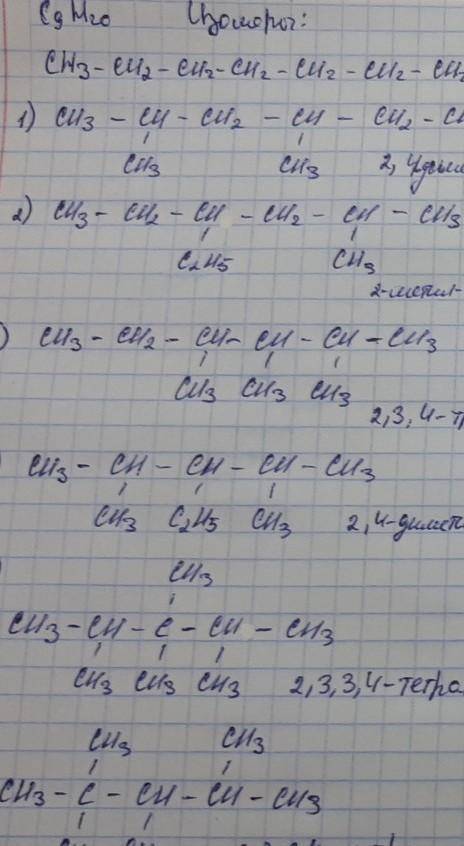 C9H20 Изомеры:
CH3 – CH2 – CH2 – CH2 – CH2 – CH2 – CH2
1) CH3 – CH – CH2 – CH – CH2 – CH
CH3 CH3 2,4диме
2) CH3 – CH2 – CH – CH2 – CH – CH3
C2H5 CH3
2-метил-
) CH3 – CH2 – CH – CH – CH – CH3
CH3 CH3 CH3
2,3,4-т
CH3 – CH – CH – CH – CH3
CH3 C2H5 CH3 2,4-димет
CH3
CH3 – CH – C – CH – CH3
CH3 CH3 CH3 2,3,3,4-тетра
CH3 CH3
CH3 – C – CH – CH – CH3